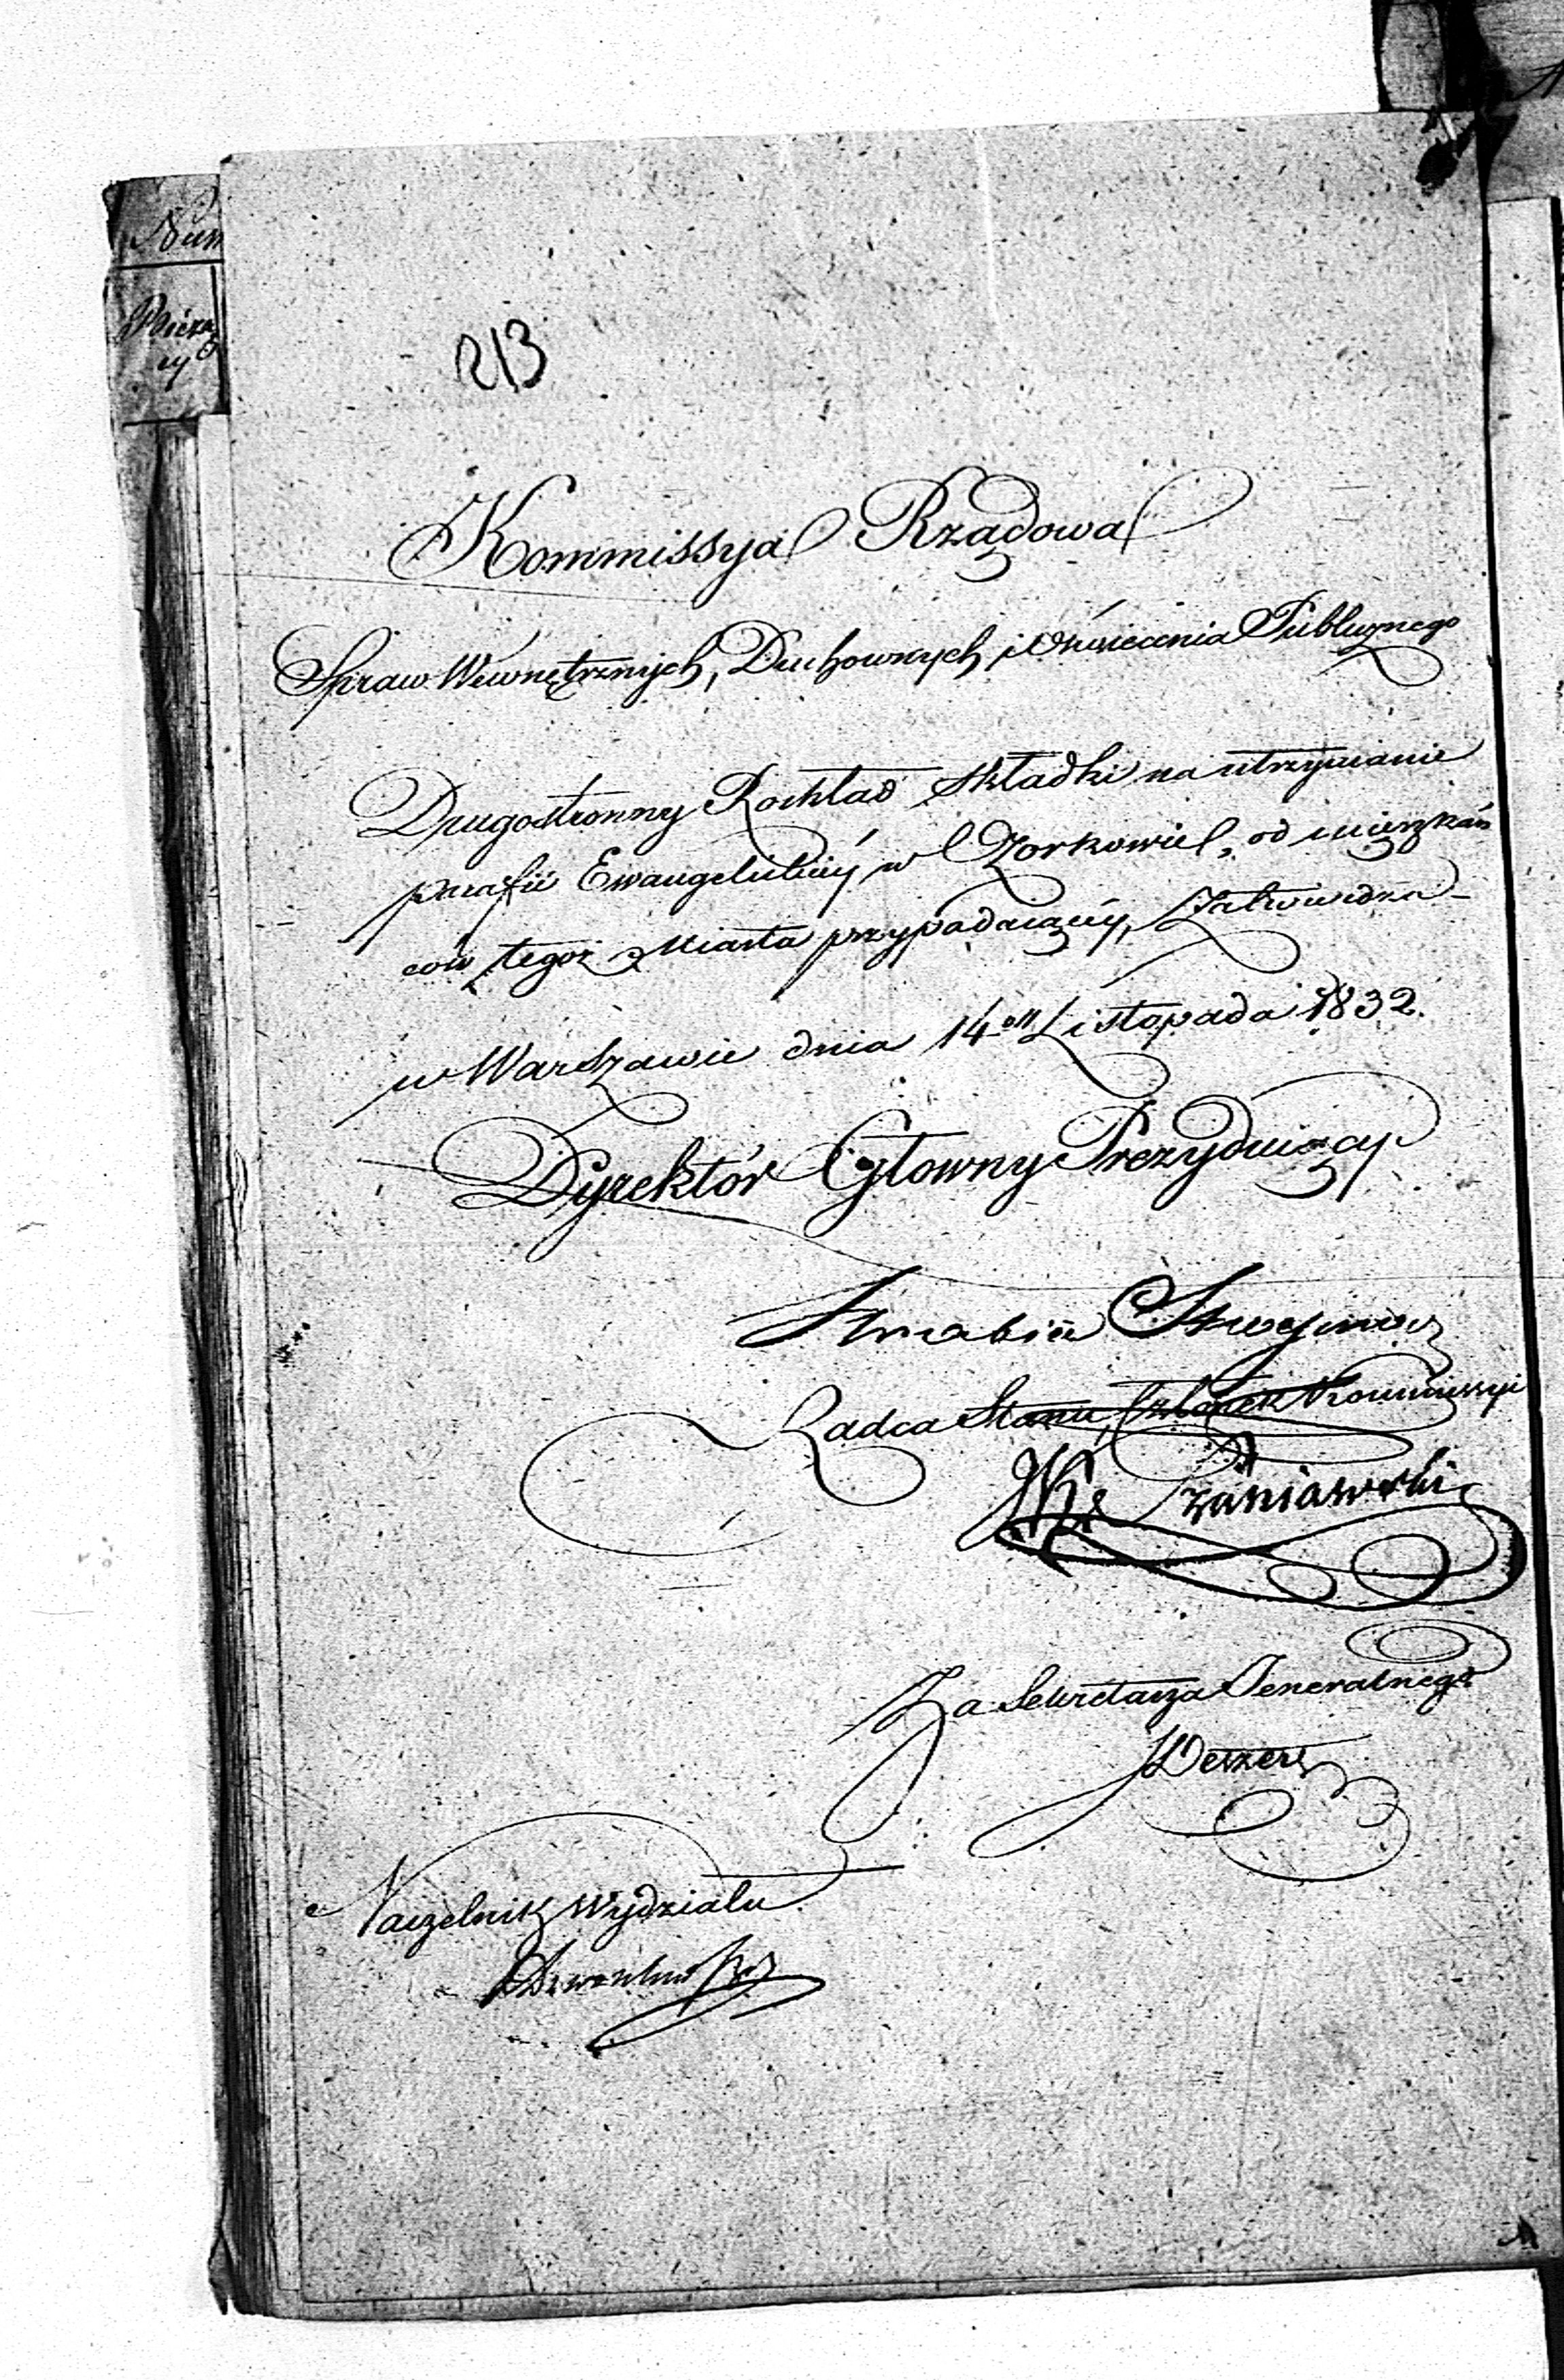 Num
Bieżą
cy
213
Kommissya Rządowa
Spraw Wewnętrznych, Duchownych i Oświecenia Publicznego
Drugostronny Rozkład składki na utrzymanie
parafii Ewangelickiey w Zorkowie, od mieszkań
ców tegoż Miasta przypadaiącey, Zatwierdza
w Warszawie dnia 14 Listopada 1832.
Dyrektór Głowny Prezyduiący
Hrabia Strogonow
Radca Stanu, Członek Kommissyi
Szaniawski
Za Sekretarza Jeneralnego
Naczelnik Wydziału